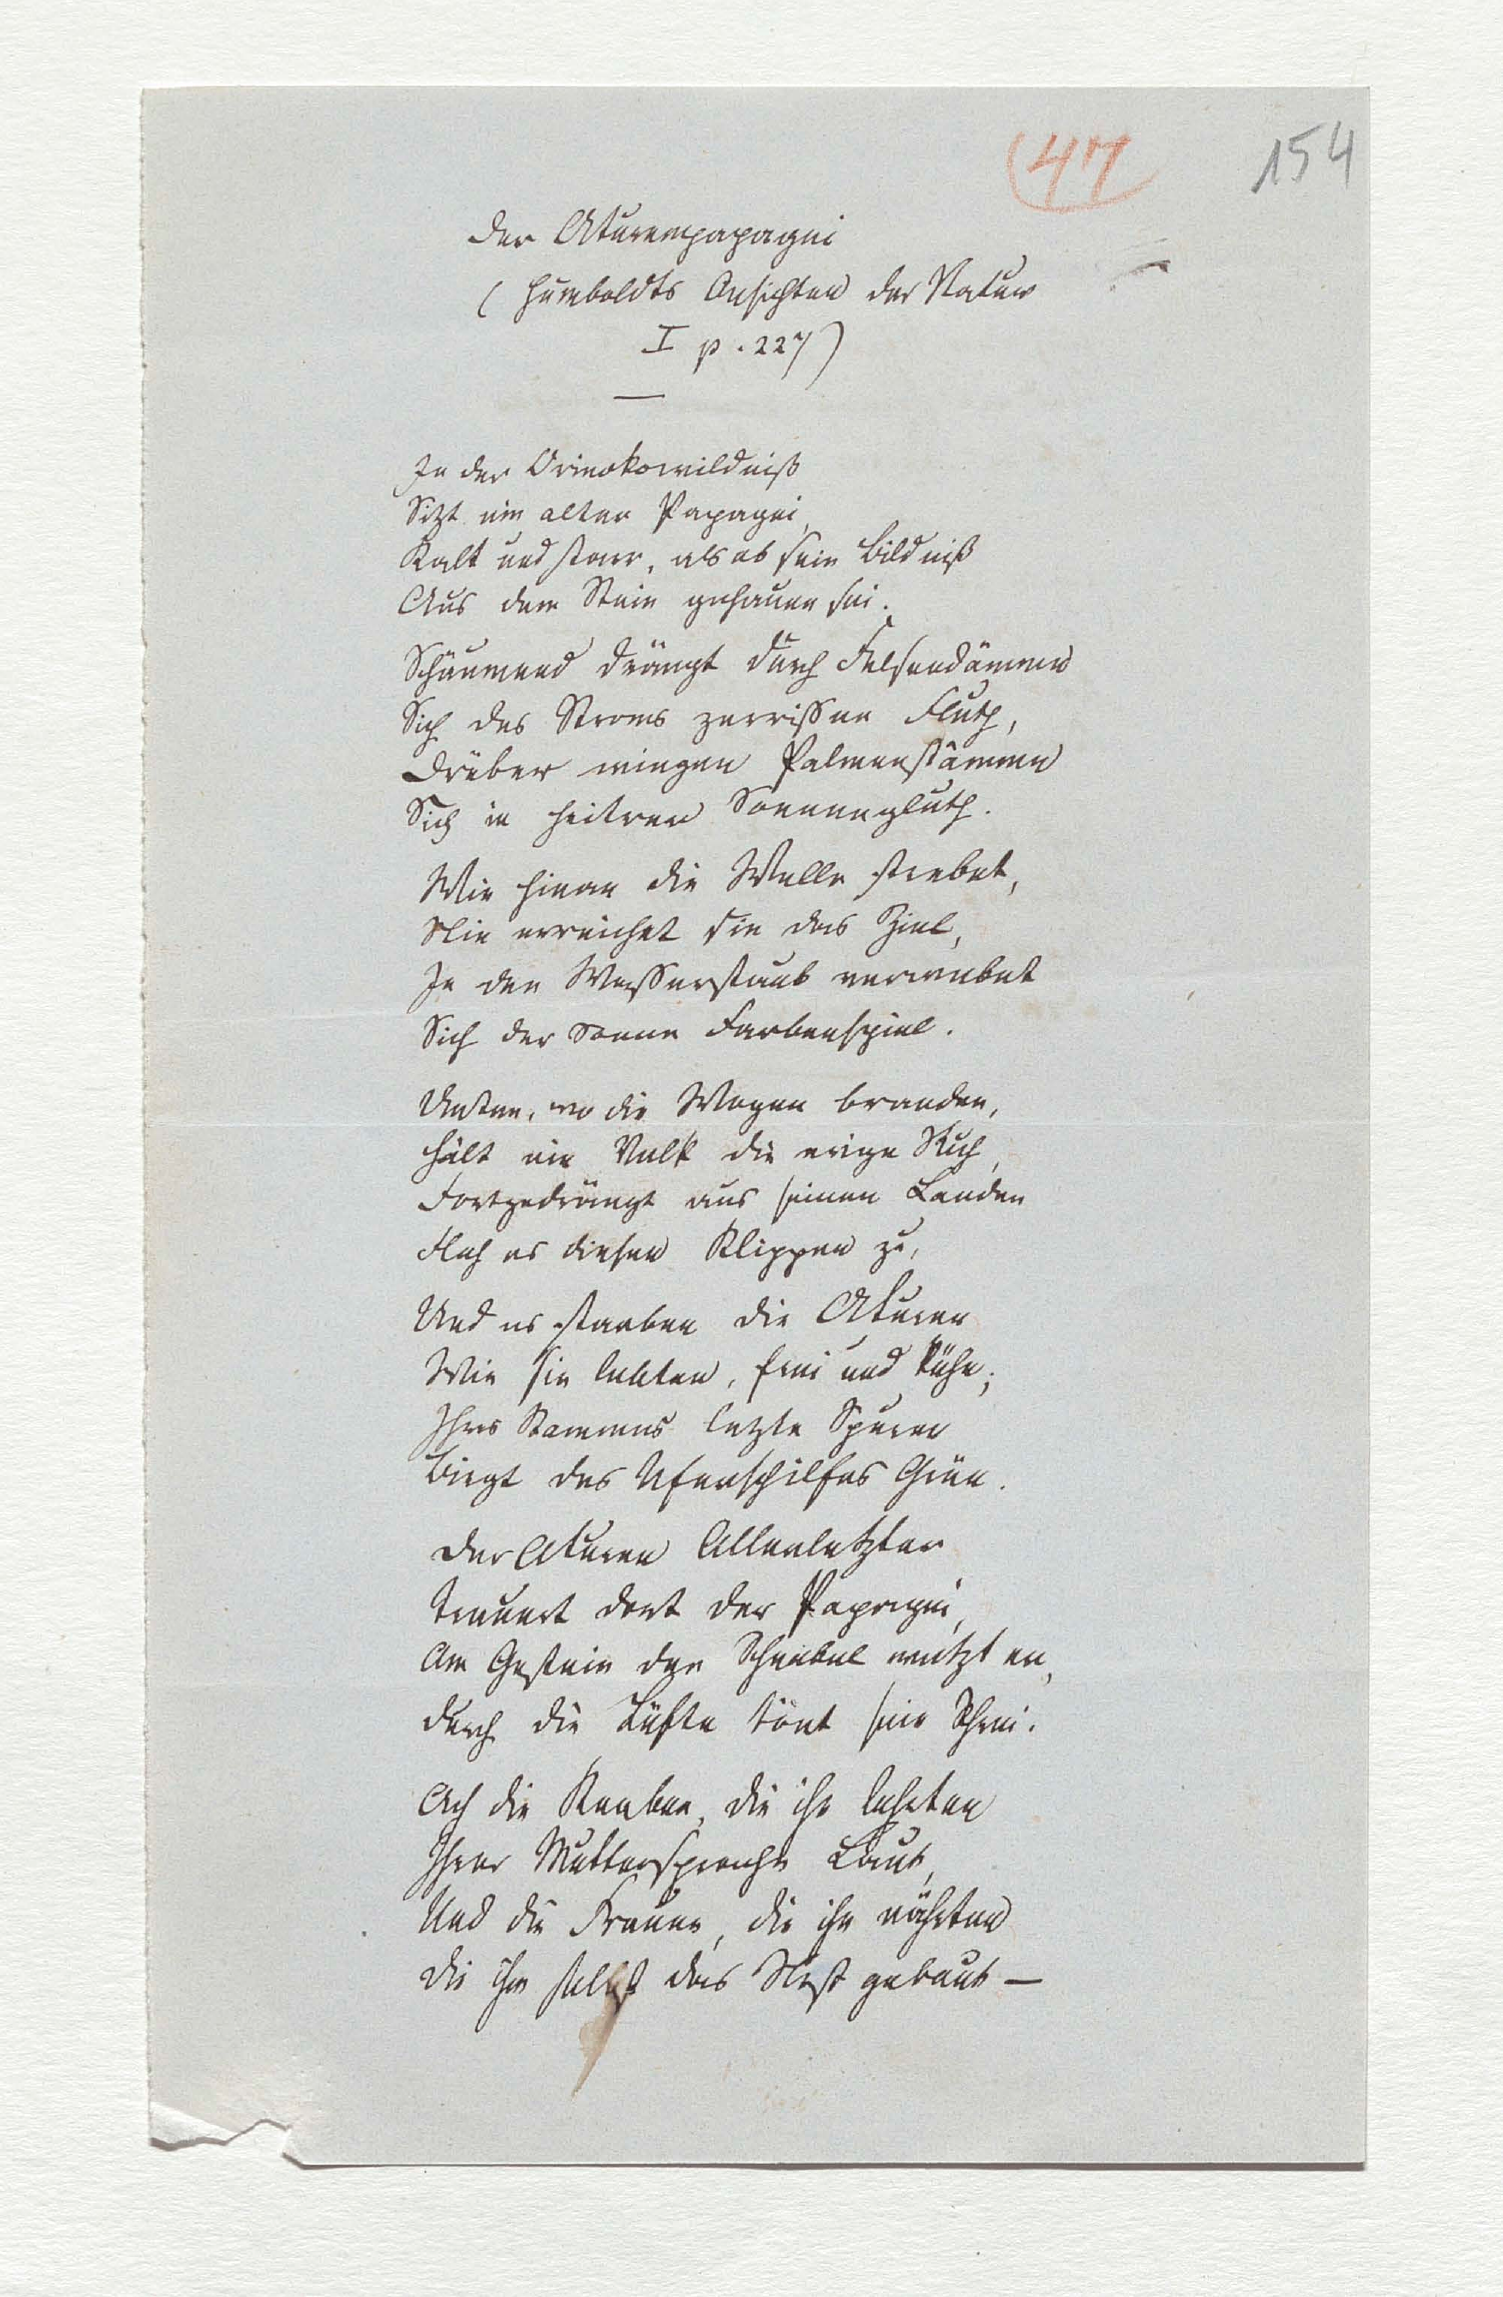 47
154
Der Aturenpapagei
(Humboldts Ansichten der Natur
I p. 227)
In der Orinokowildniß
Sitzt ein alter Papagei,
Kalt und starr, als ob sein Bildniß
Aus dem Stein gehauen sei.
Schäumend drängt durch Felsendämme
Sich des Stroms zerrissne Fluth,
Drüber wiegen Palmenstämme
Sich in heitrer Sonnengluth.
Wie hinan die Welle strebet,
Nie erreichet sie das Ziel,
In den Wasserstaub verwebet
Sich der Sonne Farbenspiel.
Unten, wo die Wogen branden,
Hält ein Volk die ewge Ruh,
Fortgedrängt aus seinen Landen
Floh es diesen Klippen zu,
Und es starben die Aturen
Wie sie lebten, frei und kühn;
Ihres Stammes letzte Spuren
Birgt des Uferschilfes Grün.
Der Aturen Allerletzter
Trauert dort der Papagei,
Am Gestein den Schnabel wetzt er,
Durch die Lüfte tönt sein Schrei.
Ach die Knaben, die ihn lehrten
Ihrer Muttersprache Laut,
Und die Frauen, die ihn nährten
Die ihm selbst das Nest gebaut —